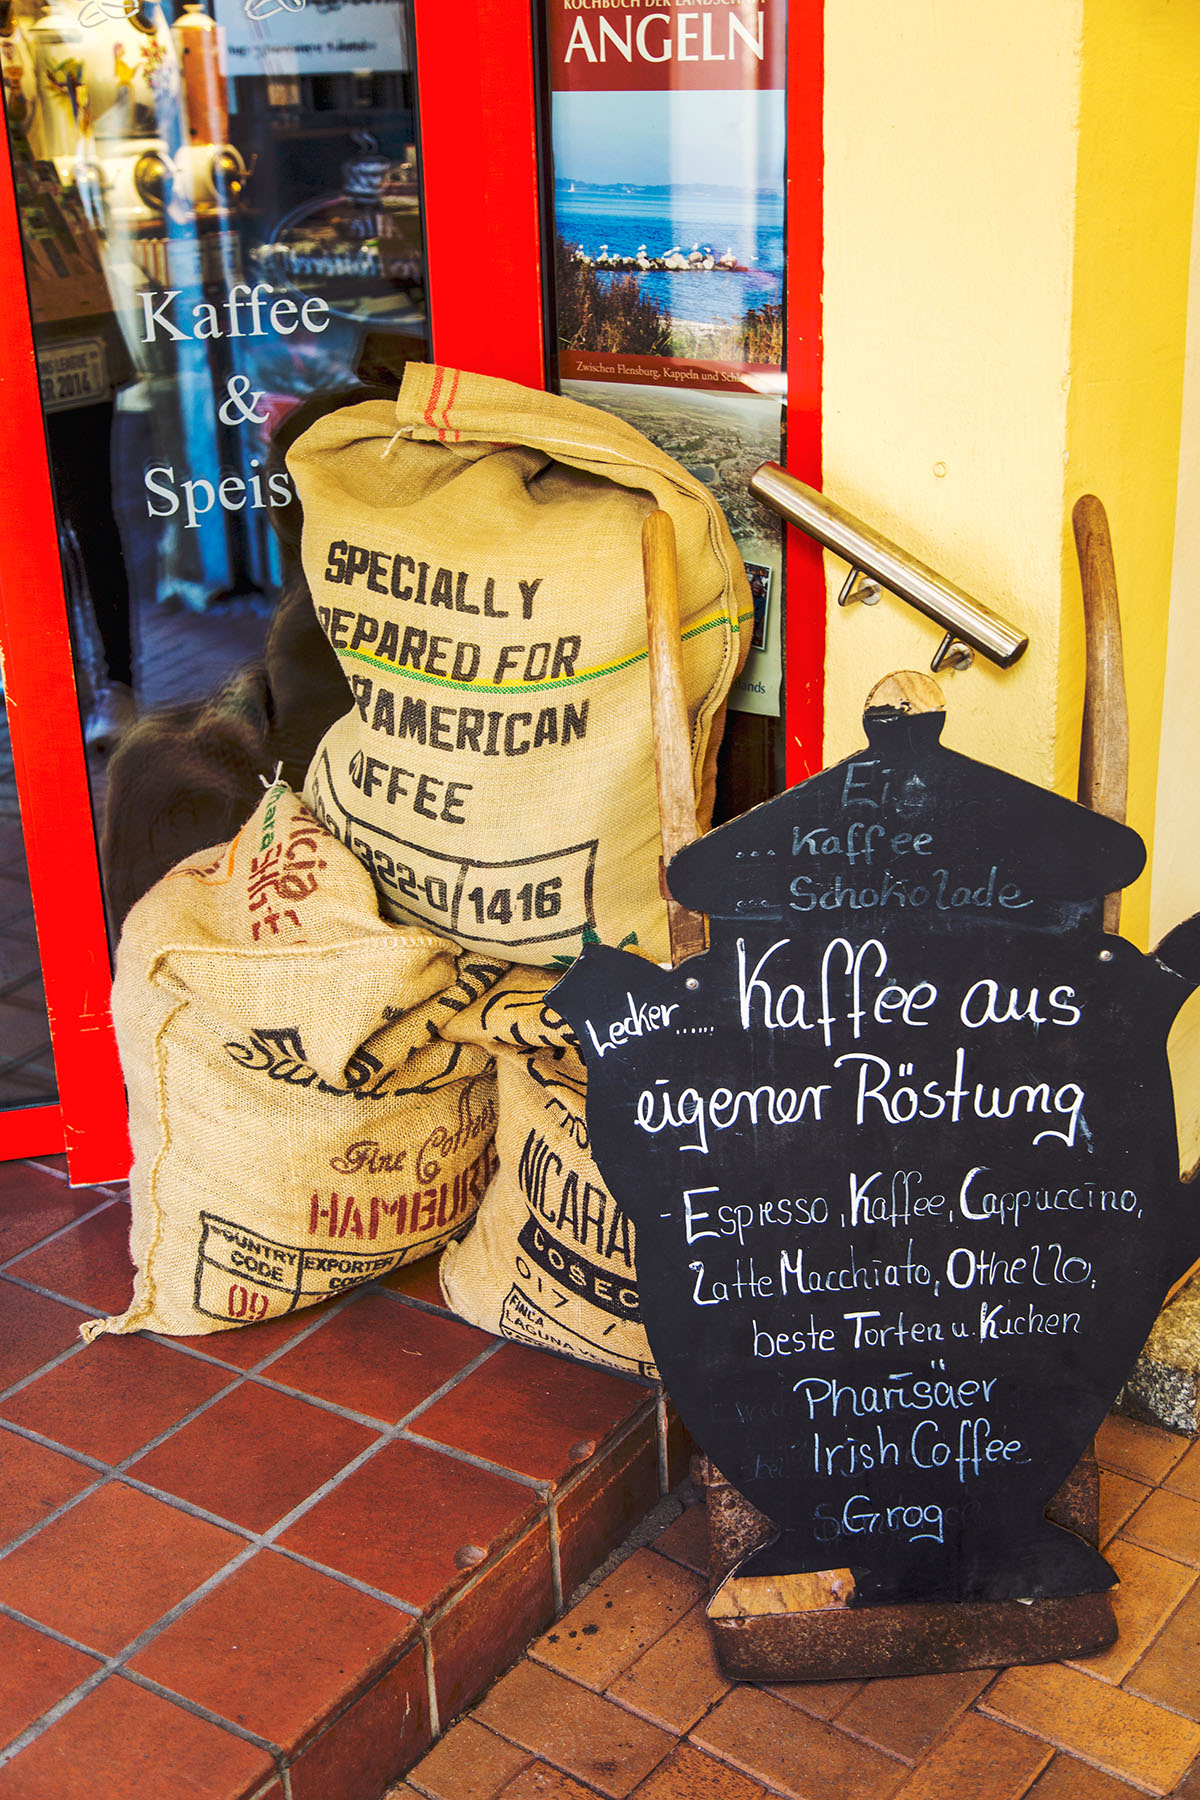 KOCHBUCH DER LANDSCHAFT
ANGELN
Zwischen Flensburg, Kappeln und
Kaffee
&
2014
SPECIALLY
PREPARED FOR
AMERICAN
OFFEE
322-0 1416
Fine Coffees
HAMBUR
COUNTRY CODE
EXPORTER CODE
09
NICARA
COSEC
017
FINCA
LAGUNA
... Kaffee
... Schokolade
Lecker...... Kaffee aus
eigener Röstung
- Espresso, Kaffee, Cappuccino,
Latte Macchiato, Othello,
beste Torten u. Kuchen
Pharisäer
Irish Coffee
Grog